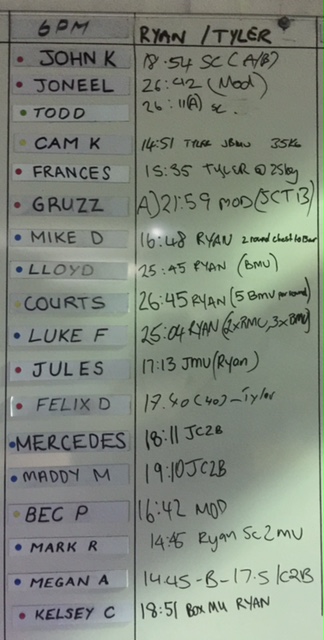 6PM RYAN / TYLER
JOHN K 18:54 SC (A/B)
JONEEL 26:42 (Mod)
TODD 26:11(A) SC
CAM K 14:51 TYLER JBMU 35KG
FRANCES 15:35 TYLER @ 25kg
GRUZZ A) 21:59 MOD (SCT 13)
MIKE D 16:48 RYAN 2 round chest to Bar
LLOYD 25:45 RYAN (BMU)
COURTS 26:45 RYAN (5 BMU per round)
LUKE F 25:04 RYAN (2xRMU, 3xBMU)
JULES 17:13 JMU (Ryan)
FELIX D 17.40 (40) - Tyler
MERCEDES 18:11 JC2B
MADDY M 19:10 JC2B
BEC P 16:42 MOD
MARK R 14:45 Ryan Sc 2 MU
MEGAN A 14:45 - B - 17.5 / C2B
KELSEY C 18:51 BOX MU RYAN